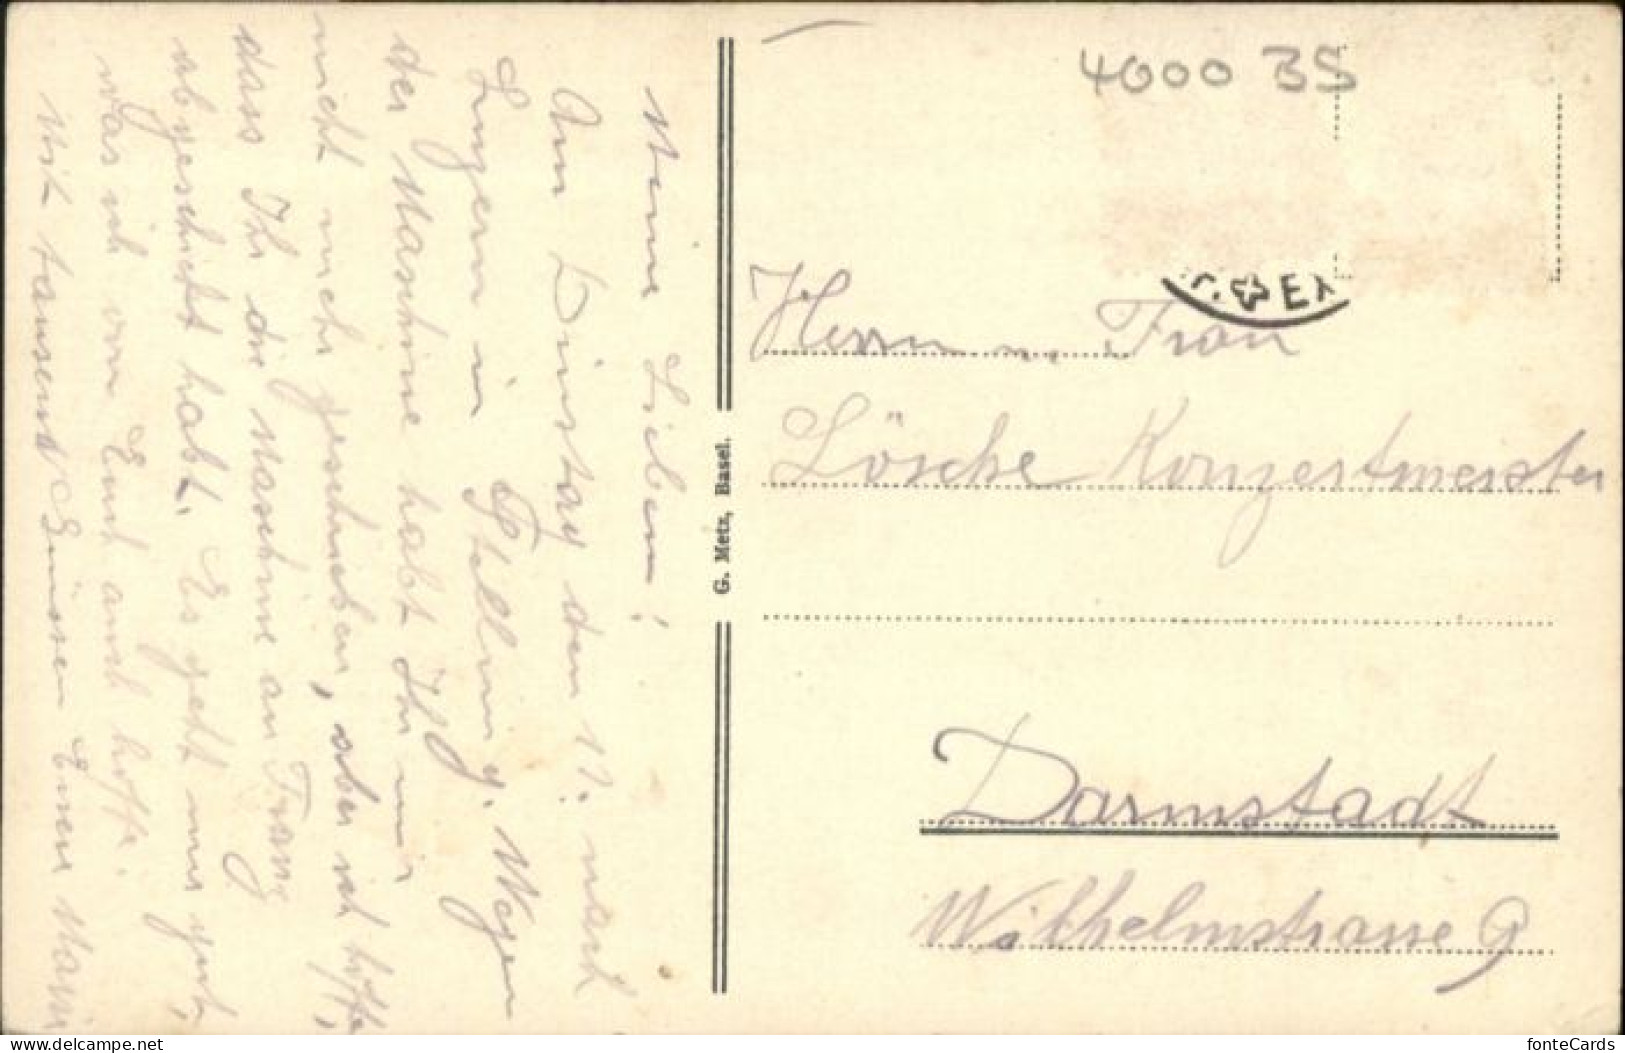 Meine Lieben!
Am Dinstag den 17. nach
Luzern in Stellung. Wegen
der Maschine habt Ihr mir
nicht mehr geschrieben, aber ich hoffe,
dass Ihr die Maschine an Franz
abgeschickt habt. Es geht mir gut,
was ich von Euch auch hoffe.
Mit tausend Grüssen Euer Mari
G. Metz, Basel.
4000 BS
Herrn u. Frau
Lösche Konzertmeister
Darmstadt
Wilhelmstrasse 9
fonteCards